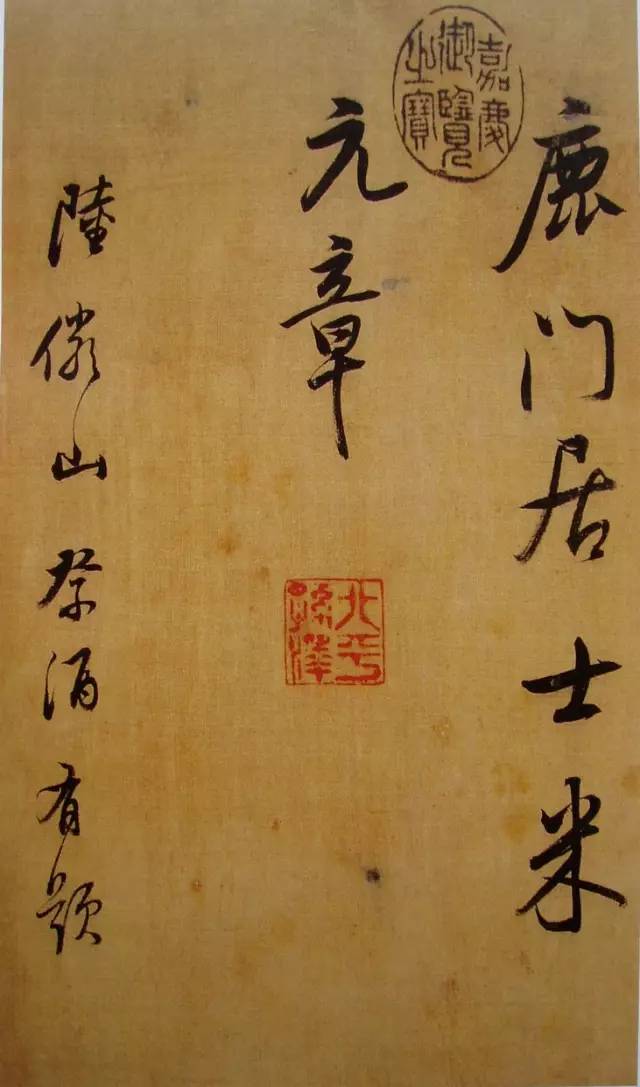 鹿门居士米
嘉慶御覽之寶
元章
北平
陸儼山祭酒有題